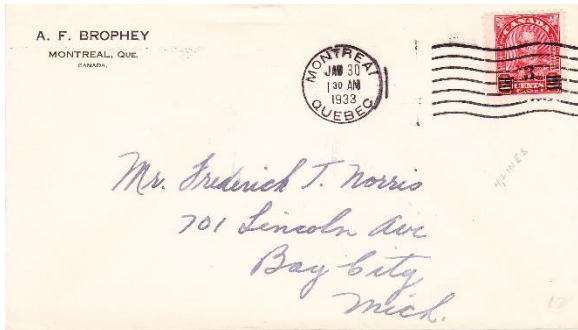 A. F. BROPHEY
MONTREAL, QUE.
CANADA.
MONTREAL
JAN 30
1 30 AM
1933
QUEBEC
CANADA
3
CENTS
Mr. Frederick T. Norris
701 Lincoln Ave
Bay City
Mich.